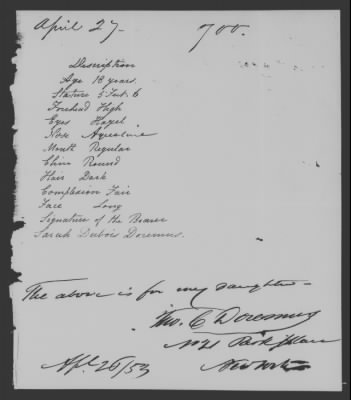 April 27- 700.
Description
Age 18 years.
Stature 5 Feet. 6
Forehead High
Eyes Hazel
Nose Aquiline
Mouth Regular
Chin Round
Hair Dark
Complexion Fair
Face Long
Signature of the Bearer
Sarah Dubois Doremus.
The above is for my daughter-
Tho. C Doremus
No 21 Park place
New York
Apl 26/53